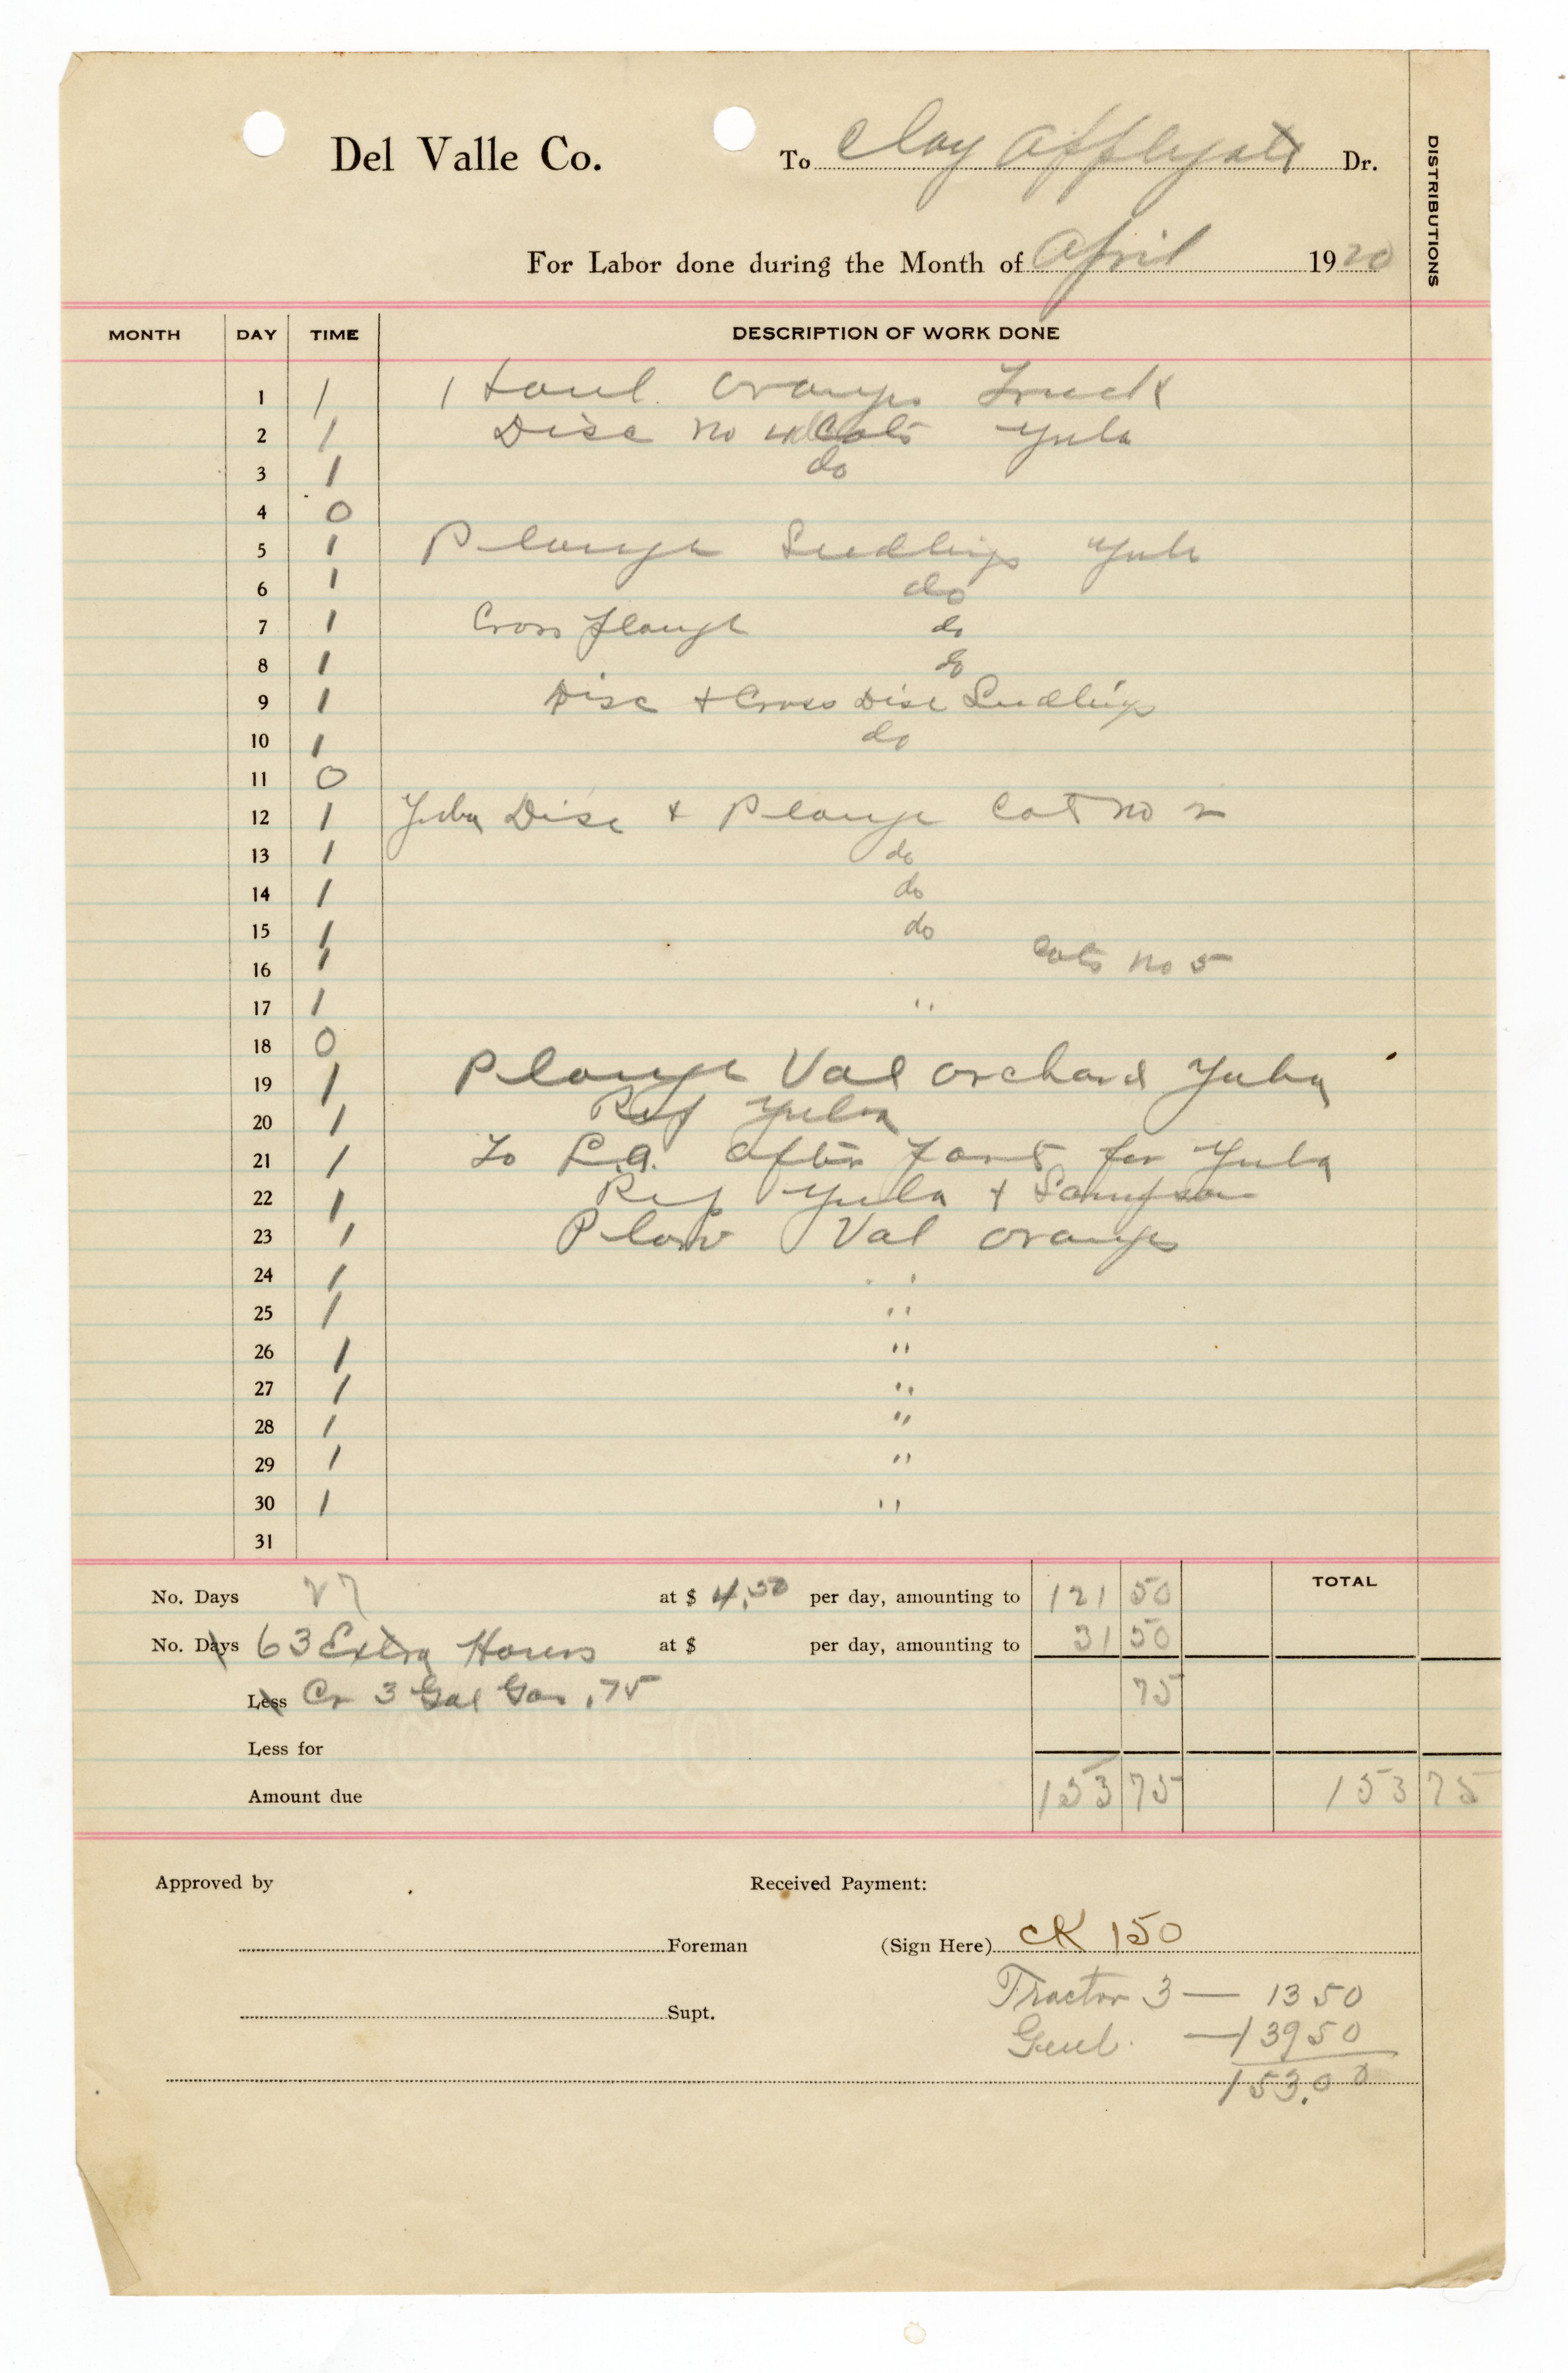 Del Valle Co. To Clay Applegate Dr.
For Labor done during the Month of April 1920
DISTRIBUTIONS
MONTH DAY TIME DESCRIPTION OF WORK DONE
1 1 Haul Oranges Truck
2 1 Disc No 4 Cots Yuba
3 1 do
4 0
5 1 Plough Seedlings Yuba
6 1 do
7 1 Cross plough do
8 1 do
9 1 Disc + Cross Disc Seedlings
10 1 do
11 0
12 1 Yuba Disc + Plough Cot No 2
13 1 do
14 1 do
15 1 do
16 1 Cots No 5
17 1 "
18 0
19 1 Plough Val orchard Yuba
20 1 Rep Yuba
21 1 To L.A. after part for Yuba
22 1 Rep Yuba + Sampson
23 1 Plow Val oranges
24 1 "
25 1 "
26 1 "
27 1 "
28 1 "
29 1 "
30 1 "
31
No. Days 27 at $ 4.50 per day, amounting to 121 50 TOTAL
No. Days 63 Extra Hours at $ per day, amounting to 31 50
Less Cr 3 Gal Gas .75 75
Less for
Amount due 153 75 153 75
Approved by Received Payment:
Foreman (Sign Here) CK 150
Tractor 3 — 13 50
Supt.
Genl. — 139 50
153.00